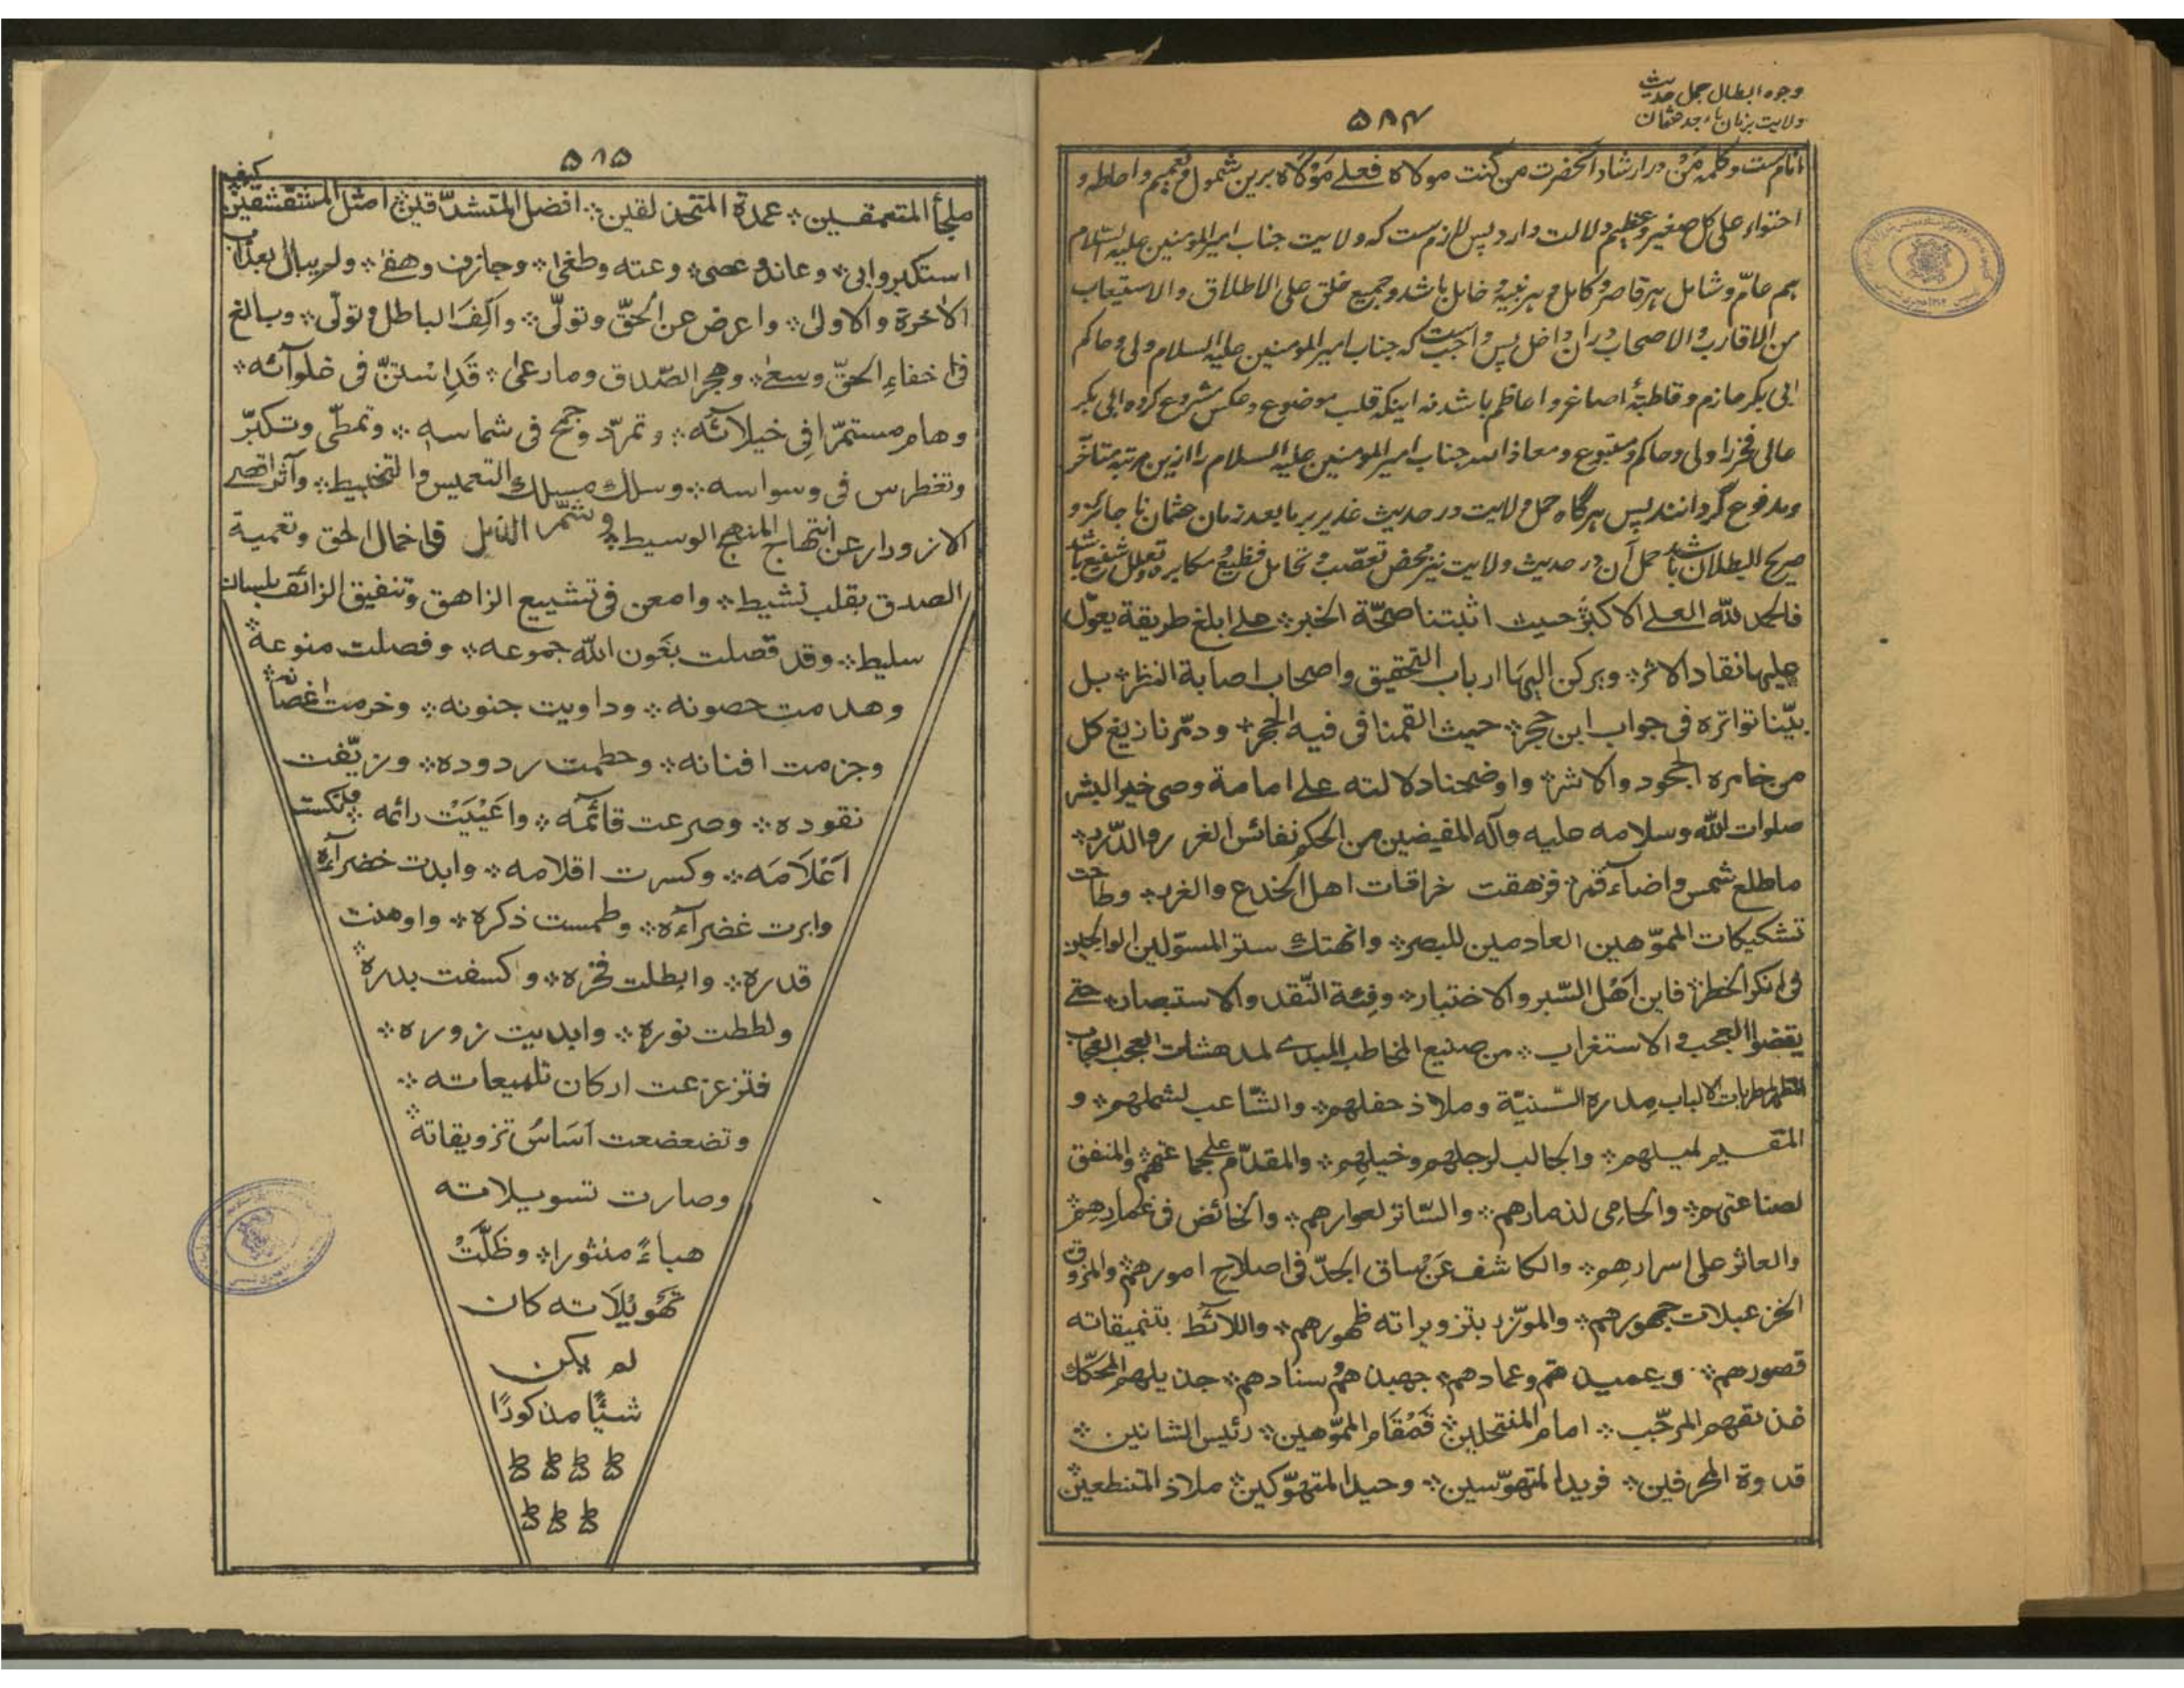 وجوه ابطال حمل حدیث
ولایت بزمان ما بعد عثمان
۵۸۴
انام ست و کلمه مَنْ در ارشاد آنحضرت من کنت مولاه فعلے مَوْلَاه برین شمول و تعمیم و احاطه و
احتواء علی کل صغیر و عظیم دلالت دارد پس لازم ست که ولایت جناب امیر المومنین علیه السلام
هم عامّ و شامل هر قاصر و کامل و هر نبیه و خامل باشد و جمیع خلق علی الاطلاق والاستیعاب
من الاقارب والاصحاب دران داخل پس واجب است که جناب امیر المومنین علیه السلام ولی و حاکم
ابی بکر حازم و قاطبهٔ اصاغر و اعاظم باشد نه اینکه قلب موضوع و عکس مشروع کرده ابی بکر
عالی فخر را ولی و حاکم و متبوع و معاذ الله جناب امیر المومنین علیه السلام را ازین مرتبه متأخر
و مدفوع گردانند پس هرگاه حمل ولایت در حدیث غدیر بر ما بعد زمان عثمان نا جائز و
صریح البطلان باشد حمل آن در حدیث ولایت نیز محض تعصّب و تحامل فظیع و مکابره و تعلل شنیع باشد
فالحمد للّه العلے الاکبر حیث اثبتنا صحّة الخبر ؞ علے ابلغ طریقة یعوّل
علیها نقاد الاثر ؞ ویرکن الیها ارباب التحقیق واصحاب اصابة النظر ؞ بل
بیّنا تواتره فی جواب ابن حجر ؞ حیث القمنا فی فیه الحجر ؞ ودمّرنا زیغ کل
من خامره الجحود والاشر ؞ واوضحنا دلالته علے امامة وصی خیر البشر
صلوات اللّه وسلامه علیه وآله المفیضین من الحکم نفائس الغرر والدّرر ؞
ما طلع شمس واضاء قمر ؞ فزهقت خرافات اهل الخدع والغرر ؞ وطاحت
تشکیکات المموّهین العادمین للبصر ؞ وانهتك ستر المسوّلین الوالجین
فی انکر الخطر ؞ فاین اَهْل السّبر والاختبار ؞ وفئة النّقد والاستبصار ؞ حتے
یقضوا العجب والاستغراب ؞ من صنیع المخاطب المبدے لمدهشات العجب العجاب
المظهر لمطربات الالباب مدره السّنیّة وملاذ حفلهم ؞ والشّاعب لشملهم ؞ و
المقیم لمیلهم ؞ والجالب لرجلهم وخیلهم ؞ والمقدّم علے جماعتهم ؞ والمنفق
لصناعتهم ؞ والحامی لذمارهم ؞ والسّاتر لعوارهم ؞ والخائض فی غمارهم ؞
والعاثر علی اسرارهم ؞ والکاشف عَنْ ساق الجدّ فی اصلاح امورهم ؞ والمزوق
الخزعبلات جمهورهم ؞ والمؤزر بتزویراته ظهورهم ؞ واللائط بتنمیقاته
قصورهم ؞ وعمیدهم وعمادهم ؞ جهبذهم سنادهم ؞ جذیلهم المحکّك
عذیقهم المرجّب ؞ امام المنتحلین ؞ قَمْقَام المموّهین ؞ رئیس الشانین ؞
قدوة المحرفین ؞ فرید المتهوّسین ؞ وحید المتهوّکین ؞ ملاذ المتنطعین ؞
۵۸۵
ملجأ المتعمقین ؞ عمدة المتحذلقین ؞ افضل المتشدّقین ؞ امثل المتقشقین ؞ کیف
استکبر وابی ؞ وعاند وعصی ؞ وعته وطغی ؞ وجازف وهفے ؞ ولم یبال بعذاب
الآخرة والاولی ؞ واعرض عن الحقّ وتولّی ؞ وآلِفَ الباطل وتولّی ؞ وبالغ
فی اخفاء الحقّ وسعے ؞ وهجر الصّدق وما رعی ؞ قَدِ اسْتنّ فی غلوآئه ؞
وهام مستمرّا فی خیلائه ؞ وتمرّد وجمح فی شماسه ؞ وتمطّی وتکبرّ
وتغطرس فی وسواسه ؞ وسلك مسلك التعمیس والتخبیط ؞ وآثر اقصے
الازورار عن انتهاج المنهج الوسیط ؞ وشمّر الذیل فی اخمال الحق وتعمیة
الصدق بقلب نشیط ؞ وامعن فی تشییع الزاهق وتنفیق الزائف بلسان
سلیط ؞ وقد فصلت بعَون اللّه جموعه ؞ وفصلت منوعه ؞
وهدمت حصونه ؞ وداویت جنونه ؞ وخرمت اغصانه ؞
وجزمت افنانه ؞ وحطمت ردوده ؞ وزیّفت
نقوده ؞ وصرعت قائمه ؞ واَعْیَیْت رائمه ؞ ونکست
اَعْلَامَه ؞ وکسرت اقلامه ؞ وابدت خضراءه
وابرت غضراءه ؞ وطمست ذکره ؞ واوهنت
قدره ؞ وابطلت فخره ؞ وکسفت بدره ؞
ولططت نوره ؞ وابدیت زوره ؞
فتزعزعت ارکان تلمیعاته ؞
وتضعضعت آسَاسُ تزویقاته ؞
وصارت تسویلاته
هباءً منثورا ؞ وظَلَّتْ
تَهْوِیْلَاته کان
لم یکن
شیئًا مذکورًا